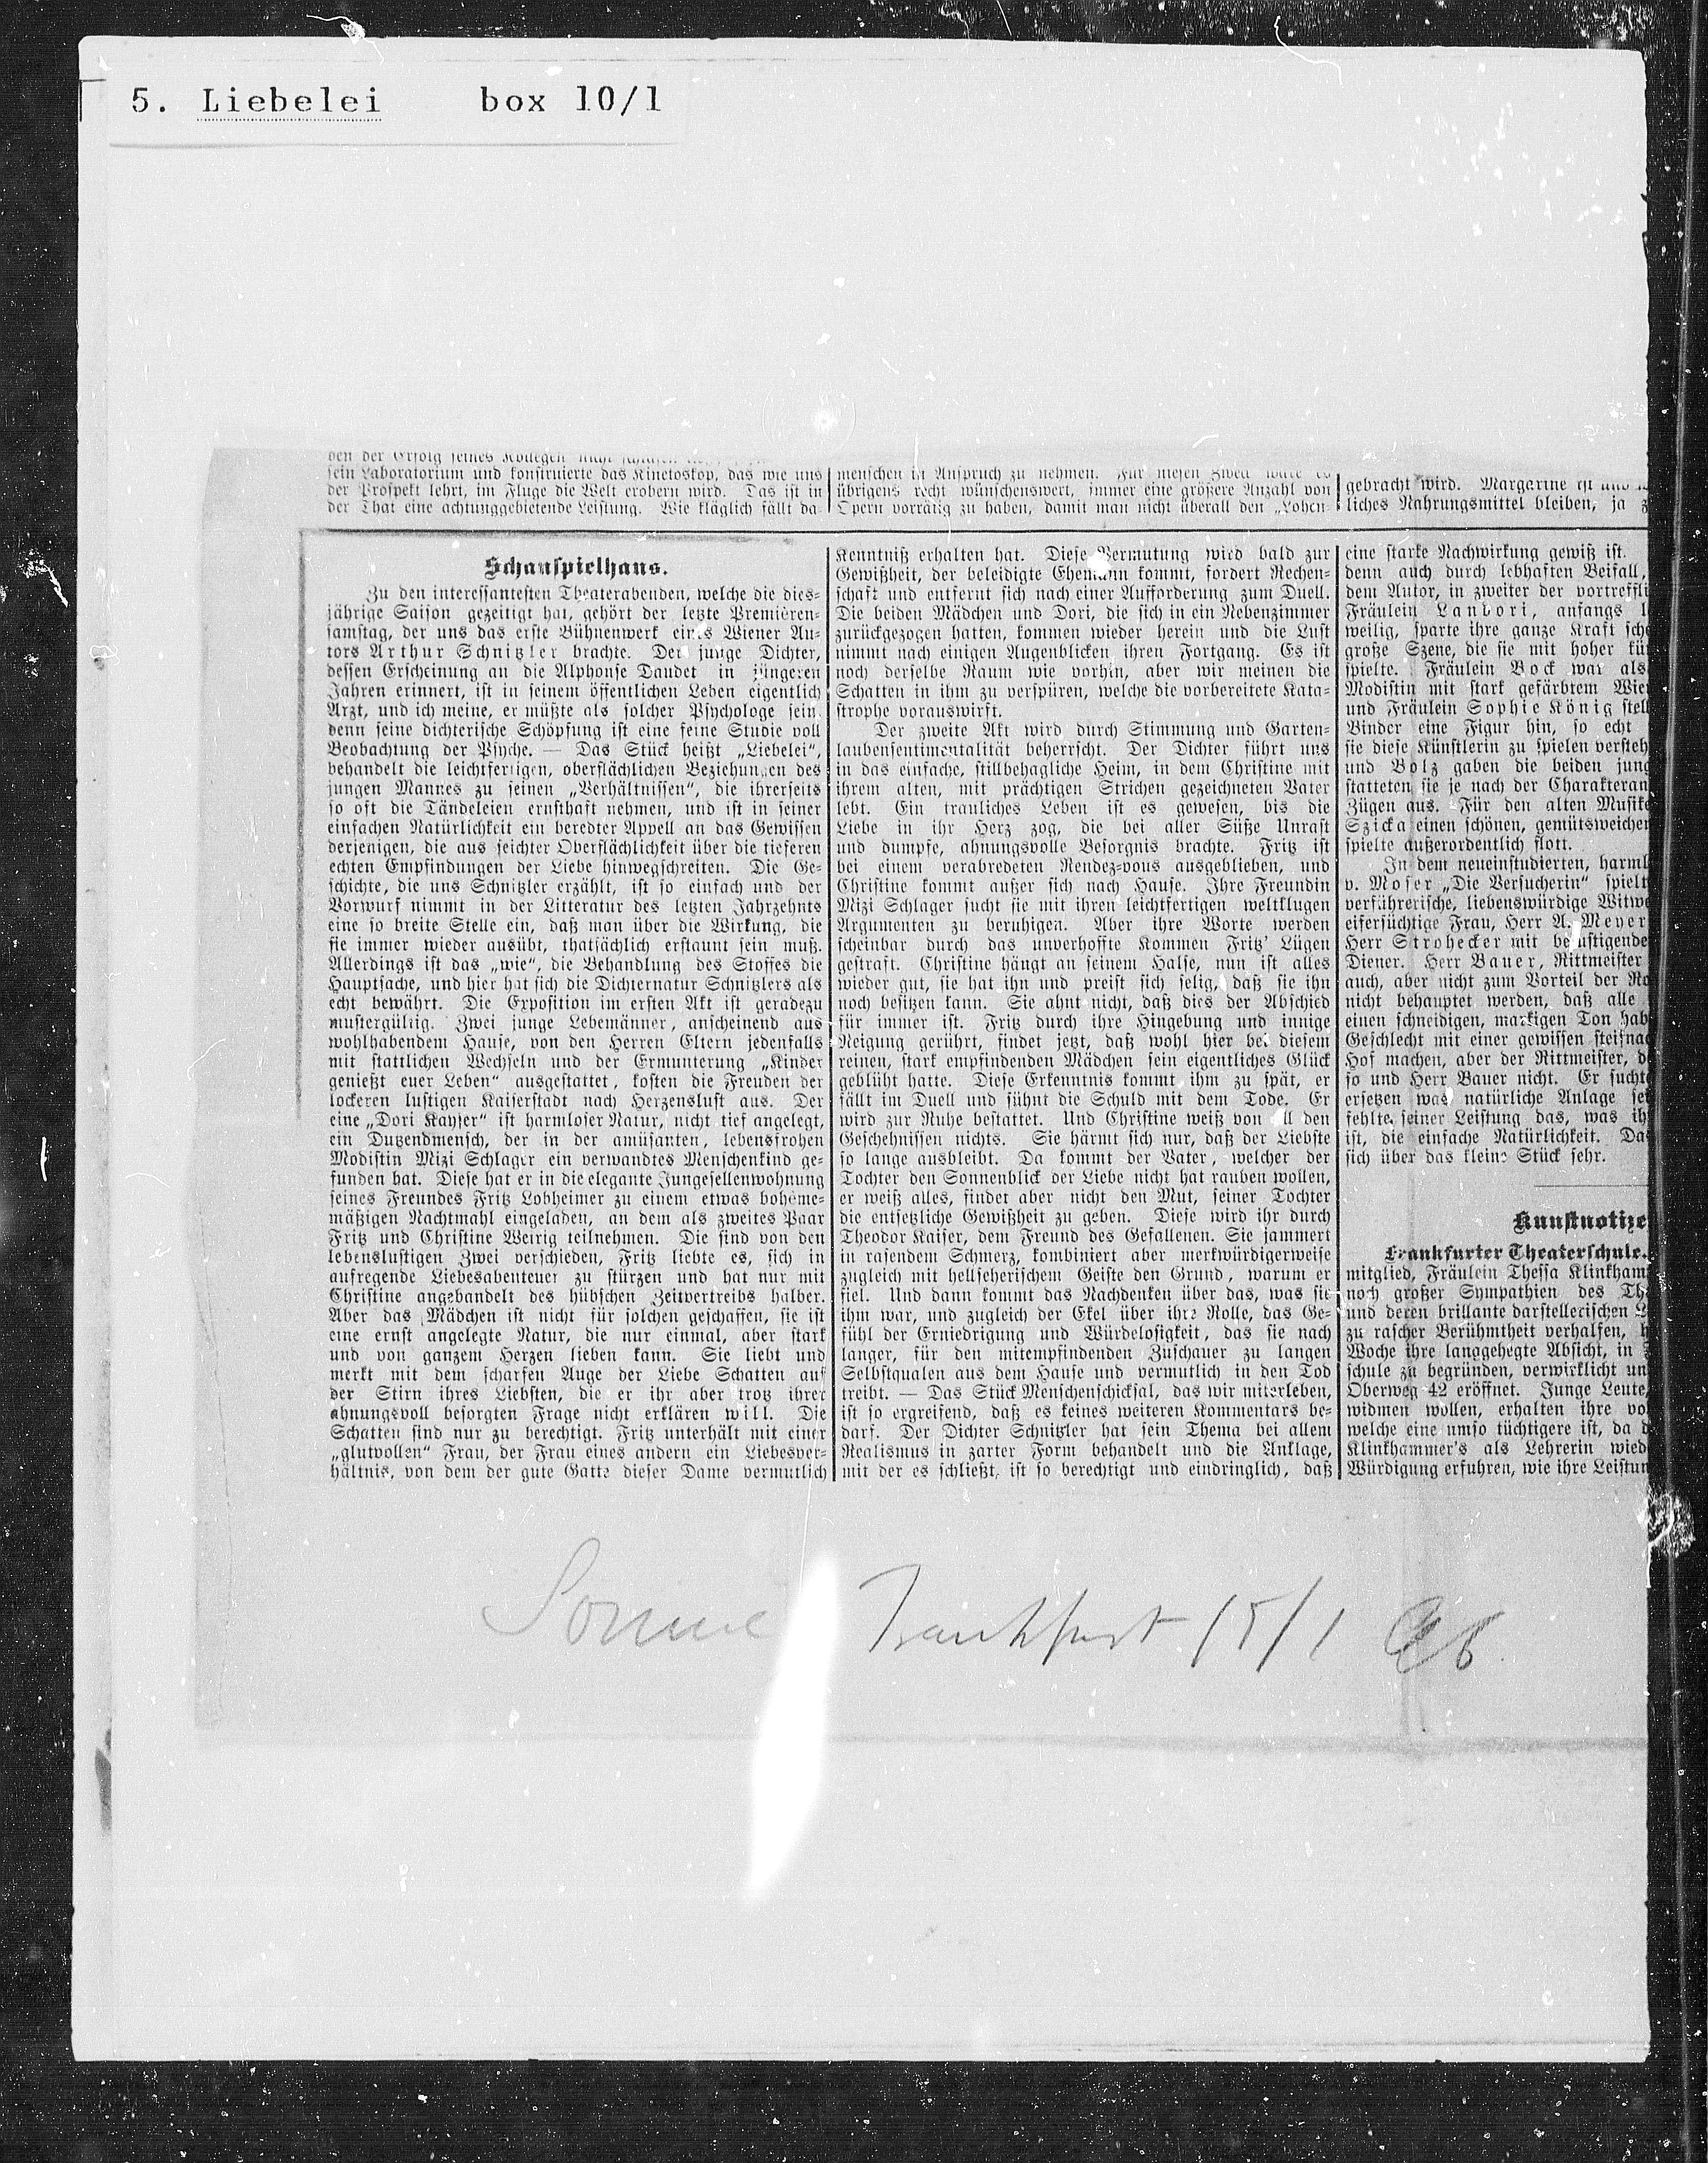 5. Liebelei box 10/1
sein Laboratorium und konstruierte das Kinetoskop, das wie uns
der Prospekt lehrt, im Fluge die Welt erobern wird. Das ist in
der That eine achtunggebietende Leistung. Wie kläglich fällt da-
Schauspielhaus.
Zu den interessantesten Theaterabenden, welche die dies-
jährige Saison gezeitigt hat, gehört der letzte Premièren-
samstag, der uns das erste Bühnenwerk eines Wiener Au-
tors Arthur Schnitzler brachte. Der junge Dichter,
dessen Erscheinung an die Alphonse Daudet in jüngeren
Jahren erinnert, ist in seinem öffentlichen Leben eigentlich
Arzt, und ich meine, er müßte als solcher Psychologe sein
denn seine dichterische Schöpfung ist eine feine Studie voll
Beobachtung der Psyche. — Das Stück heißt „Liebelei“,
behandelt die leichtfertigen, oberflächlichen Beziehungen des
jungen Mannes zu seinen „Verhältnissen“, die ihrerseits
so oft die Tändeleien ernsthaft nehmen, und ist in seiner
einfachen Natürlichkeit ein beredter Appell an das Gewissen
derjenigen, die aus seichter Oberflächlichkeit über die tieferen
echten Empfindungen der Liebe hinwegschreiten. Die Ge-
schichte, die uns Schnitzler erzählt, ist so einfach und der
Vorwurf nimmt in der Litteratur des letzten Jahrzehnts
eine so breite Stelle ein, daß man über die Wirkung, die
sie immer wieder ausübt, thatsächlich erstaunt sein muß.
Allerdings ist das „wie“, die Behandlung des Stoffes die
Hauptsache, und hier hat sich die Dichternatur Schnitzlers als
echt bewährt. Die Exposition im ersten Akt ist geradezu
mustergültig. Zwei junge Lebemänner, anscheinend aus
wohlhabendem Hause, von den Herren Eltern jedenfalls
mit stattlichen Wechseln und der Ermunterung „Kinder
genießt euer Leben“ ausgestattet, kosten die Freuden der
lockeren lustigen Kaiserstadt nach Herzenslust aus. Der
eine „Dori Kayser“ ist harmloser Natur, nicht tief angelegt,
ein Dutzendmensch, der in der amüsanten, lebensfrohen
Modistin Mizi Schlager ein verwandtes Menschenkind ge-
funden hat. Diese hat er in die elegante Jungesellenwohnung
seines Freundes Fritz Lobheimer zu einem etwas bohème-
mäßigen Nachtmahl eingeladen, an dem als zweites Paar
Fritz und Christine Weirig teilnehmen. Die sind von den
lebenslustigen Zwei verschieden, Fritz liebte es, sich in
aufregende Liebesabenteuer zu stürzen und hat nur mit
Christine angebandelt des hübschen Zeitvertreibs halber.
Aber das Mädchen ist nicht für solchen geschaffen, sie ist
eine ernst angelegte Natur, die nur einmal, aber stark
und von ganzem Herzen lieben kann. Sie liebt und
merkt mit dem scharfen Auge der Liebe Schatten auf
der Stirn ihres Liebsten, die er ihr aber trotz ihrer
ahnungsvoll besorgten Frage nicht erklären will. Die
Schatten sind nur zu berechtigt. Fritz unterhält mit einer
„glutvollen“ Frau, der Frau eines andern ein Liebesver-
hältnis, von dem der gute Gatte dieser Dame vermutlich
menschen in Anspruch zu nehmen. Für diesen Zweck wäre es
übrigens recht wünschenswert, immer eine größere Anzahl von
Opern vorrätig zu haben, damit man nicht überall den „Lohen-
Kenntniß erhalten hat. Diese Vermutung wird bald zur
Gewißheit, der beleidigte Ehemann kommt, fordert Rechen-
schaft und entfernt sich nach einer Aufforderung zum Duell.
Die beiden Mädchen und Dori, die sich in ein Nebenzimmer
zurückgezogen hatten, kommen wieder herein und die Lust
nimmt nach einigen Augenblicken ihren Fortgang. Es ist
noch derselbe Raum wie vorhin, aber wir meinen die
Schatten in ihm zu verspüren, welche die vorbereitete Kata-
strophe vorauswirft.
Der zweite Akt wird durch Stimmung und Garten-
laubensentimentalität beherrscht. Der Dichter führt uns
in das einfache, stillbehagliche Heim, in dem Christine mit
ihrem alten, mit prächtigen Strichen gezeichneten Vater
lebt. Ein trauliches Leben ist es gewesen, bis die
Liebe in ihr Herz zog, die bei aller Süße Unrast
und dumpfe, ahnungsvolle Besorgnis brachte. Fritz ist
bei einem verabredeten Rendez-vous ausgeblieben, und
Christine kommt außer sich nach Hause. Ihre Freundin
Mizi Schlager sucht sie mit ihren leichtfertigen weltklugen
Argumenten zu beruhigen. Aber ihre Worte werden
scheinbar durch das unverhoffte Kommen Fritz' Lügen
gestraft. Christine hängt an seinem Halse, nun ist alles
wieder gut, sie hat ihn und preist sich selig, daß sie ihn
noch besitzen kann. Sie ahnt nicht, daß dies der Abschied
für immer ist. Fritz durch ihre Hingebung und innige
Neigung gerührt, findet jetzt, daß wohl hier bei diesem
reinen, stark empfindenden Mädchen sein eigentliches Glück
geblüht hatte. Diese Erkenntnis kommt ihm zu spät, er
fällt im Duell und sühnt die Schuld mit dem Tode. Er
wird zur Ruhe bestattet. Und Christine weiß von all den
Geschehnissen nichts. Sie härmt sich nur, daß der Liebste
so lange ausbleibt. Da kommt der Vater, welcher der
Tochter den Sonnenblick der Liebe nicht hat rauben wollen,
er weiß alles, findet aber nicht den Mut, seiner Tochter
die entsetzliche Gewißheit zu geben. Diese wird ihr durch
Theodor Kaiser, dem Freund des Gefallenen. Sie jammert
in rasendem Schmerz, kombiniert aber merkwürdigerweise
zugleich mit hellseherischem Geiste den Grund, warum er
fiel. Und dann kommt das Nachdenken über das, was sie
ihm war, und zugleich der Ekel über ihre Rolle, das Ge-
fühl der Erniedrigung und Würdelosigkeit, das sie nach
langer, für den mitempfindenden Zuschauer zu langen
Selbstqualen aus dem Hause und vermutlich in den Tod
treibt. — Das Stück Menschenschicksal, das wir miterleben,
ist so ergreifend, daß es keines weiteren Kommentars be-
darf. Der Dichter Schnitzler hat sein Thema bei allem
Realismus in zarter Form behandelt und die Anklage,
mit der es schließt, ist so berechtigt und eindringlich, daß
gebracht wird. Margarine ist
liches Nahrungsmittel bleiben, ja
eine starke Nachwirkung gewiß ist.
denn auch durch lebhaften Beifall,
dem Autor, in zweiter der vortreffli
Fräulein Landori, anfangs l
weilig, sparte ihre ganze Kraft sch
große Szene, die sie mit hoher kü
spielte. Fräulein Bock war als
Modistin mit stark gefärbtem Wie
und Fräulein Sophie König stell
Binder eine Figur hin, so echt
sie diese Künstlerin zu spielen versteh
und Bolz gaben die beiden jung
statteten sie je nach der Charakteran
Zügen aus. Für den alten Musike
Szicka einen schönen, gemütsweicher
spielte außerordentlich flott.
In dem neueinstudierten, harml
v. Moser „Die Versucherin“ spielt
verführerische, liebenswürdige Witwe
eifersüchtige Frau, Herr A. Meyer
Herr Strohecker mit belustigende
Diener. Herr Bauer, Rittmeister
auch, aber nicht zum Vorteil der Ro
nicht behauptet werden, daß alle
einen schneidigen, markigen Ton hab
Geschlecht mit einer gewissen steifnac
Hof machen, aber der Rittmeister, d
so und Herr Bauer nicht. Er suchte
ersetzen was natürliche Anlage se
fehlte seiner Leistung das, was ih
ist, die einfache Natürlichkeit. Da
sich über das kleine Stück sehr.
Kunstnotize
Frankfurter Theaterschule.
mitglied, Fräulein Thessa Klinkham
noch großer Sympathien des Th
und deren brillante darstellerischen L
zu rascher Berühmtheit verhalfen, h
Woche ihre langgehegte Absicht, in
schule zu begründen, verwirklicht un
Oberweg 42 eröffnet. Junge Leute,
widmen wollen, erhalten ihre vo
welche eine umso tüchtigere ist, da d
Klinkhammer's als Lehrerin wied
Würdigung erfuhren, wie ihre Leistun
Sonne Frankfurt 15/1 96.